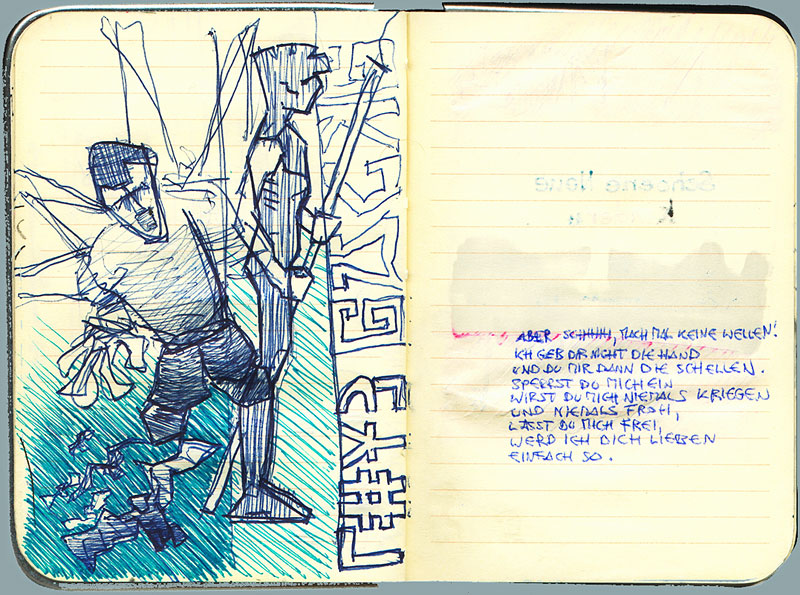 Schoene Neue
ABER SCHHHH, MACH MAL KEINE WELLEN!
ICH GEB DIR NICHT DIE HAND
UND DU MIR DANN DIE SCHELLEN.
SPERRST DU MICH EIN
WIRST DU MICH NIEMALS KRIEGEN
UND NIEMALS FROH,
LÄSST DU MICH FREI,
WERD ICH DICH LIEBEN
EINFACH SO.